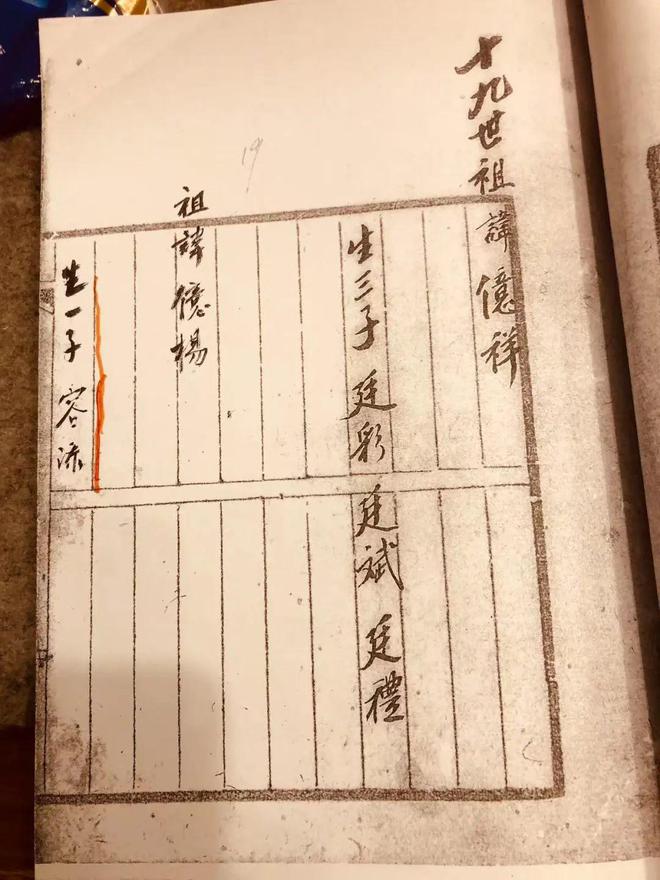 十九世祖諱億祥
生三子 廷彩 廷斌 廷禮
祖諱億楊
生一子 容添
19